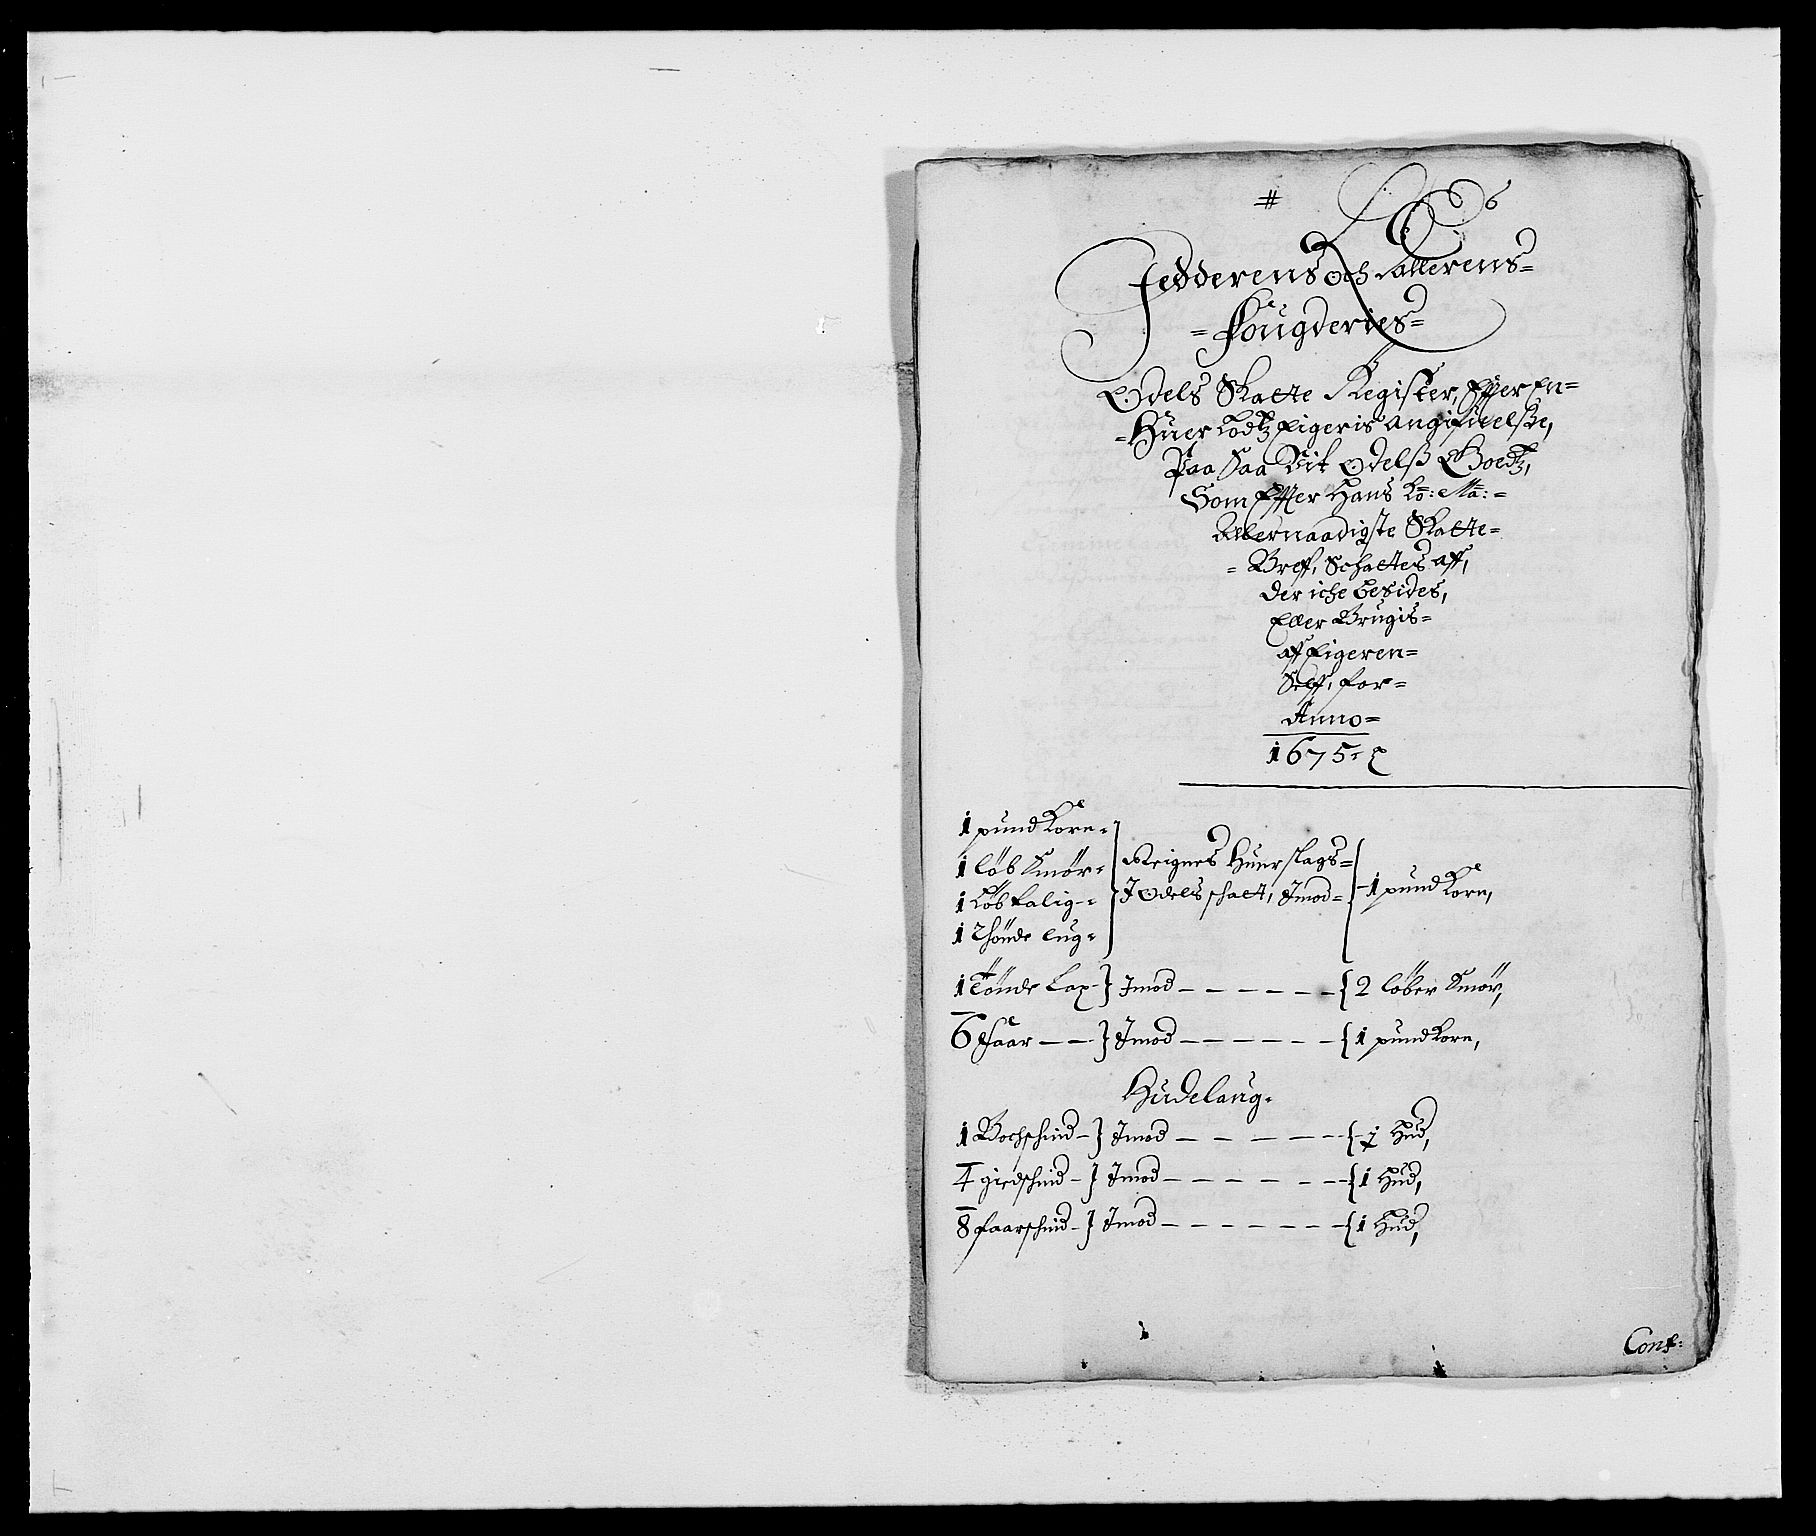 #
Jedderens och Dallerens=
=Fougderies=
Odels Skatte Register, Effter En=
=Huer Lodtz Eigeris angifuelsße,
Paa Saa Vit Odelß Goedtz,
Som Effter Hans Ko: Ma:=
Allernaadigste Skatte=
=Breff, Schattes aff,
der iche besides,
Eller Brugis=
aff Eigeren=
Selff, for=
Anno=
1675
1 pund Korn=
1 löb Smör=
1 Löb talig=
1 Thönde
Reignes Huer slags=
J Odels schatt, Jmod=
1 pund Korn,
1 Tönde Lax } Jmod - - - - - - { 2 löber Smör,
6 Faar - - } Jmod - - - - - - { 1 pund Korn,
Hudelaug.
1 Bochschind - } Jmod - - - - - - { 1 Hud,
4 giedschind - } Jmod - - - - - - { 1 Hud,
8 faarschind - } Jmod - - - - - - { 1 Hud,
Cont: